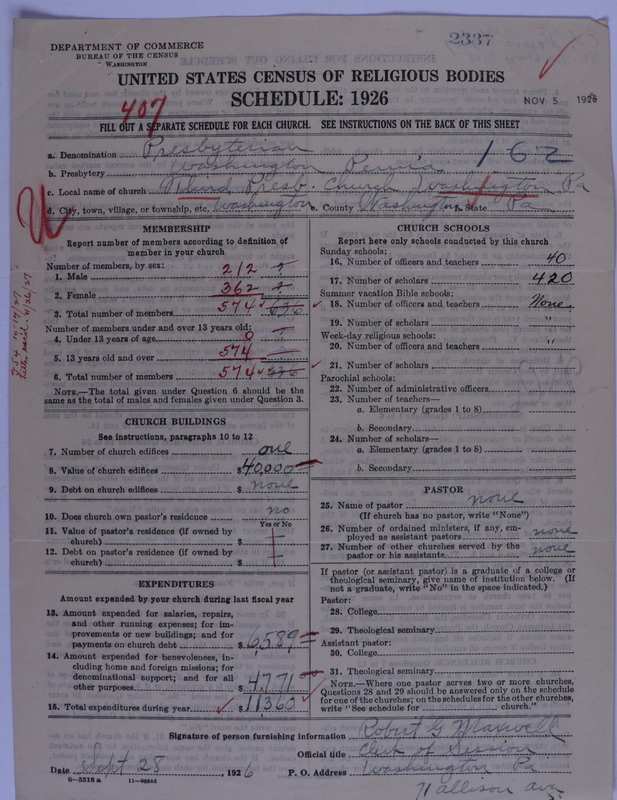 2337
DEPARTMENT OF COMMERCE
BUREAU OF THE CENSUS
WASHINGTON
UNITED STATES CENSUS OF RELIGIOUS BODIES
SCHEDULE: 1926
NOV 5 1926
407
FILL OUT A SEPARATE SCHEDULE FOR EACH CHURCH. SEE INSTRUCTIONS ON THE BACK OF THIS SHEET
a. Denomination Presbyterian
162
b. Presbytery Washington Penn'a
c. Local name of church Third Presb. Church Washington Pa
d. City, town, village, or township, etc. Washington e. County Washington f. State Pa
MEMBERSHIP
Report number of members according to definition of member in your church
Number of members, by sex:
1. Male 212 ?
2. Female 362 ?
3. Total number of members 574 636
Number of members under and over 13 years old:
4. Under 13 years of age 0 ?
5. 13 years old and over 574
6. Total number of members 574 636
NOTE.—The total given under Question 6 should be the same as the total of males and females given under Question 3.
CHURCH BUILDINGS
See instructions, paragraphs 10 to 12
7. Number of church edifices one
8. Value of church edifices $40,000
9. Debt on church edifices $ none
10. Does church own pastor's residence no
Yes or No
11. Value of pastor's residence (if owned by church) $
12. Debt on pastor's residence (if owned by church) $
EXPENDITURES
Amount expended by your church during last fiscal year
13. Amount expended for salaries, repairs, and other running expenses; for improvements or new buildings; and for payments on church debt $ 6,589
14. Amount expended for benevolences, including home and foreign missions; for denominational support; and for all other purposes 4,771
15. Total expenditures during year $ 11,360
CHURCH SCHOOLS
Report here only schools conducted by this church
Sunday schools:
16. Number of officers and teachers 40
17. Number of scholars 420
Summer vacation Bible schools:
18. Number of officers and teachers None
19. Number of scholars "
Week-day religious schools:
20. Number of officers and teachers "
21. Number of scholars
Parochial schools:
22. Number of administrative officers
23. Number of teachers—
a. Elementary (grades 1 to 8)
b. Secondary
24. Number of scholars—
a. Elementary (grades 1 to 8)
b. Secondary
PASTOR
25. Name of pastor none
(If church has no pastor, write "None")
26. Number of ordained ministers, if any, employed as assistant pastors none
27. Number of other churches served by the pastor or his assistants none
If pastor (or assistant pastor) is a graduate of a college or theological seminary, give name of institution below. (If not a graduate, write "No" in the space indicated.)
Pastor:
28. College
29. Theological seminary
Assistant pastor:
30. College
31. Theological seminary
NOTE.—Where one pastor serves two or more churches, Questions 28 and 29 should be answered only on the schedule for one of the churches; on the schedules for the other churches, write "See schedule for church."
Signature of person furnishing information Robert G Maxwell
Official title Clerk of Session
Date Sept 28, 1926 P. O. Address Washington Pa
71 allison ave
8-5518a